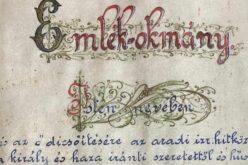 Emlék-okmány.
Isten nevében
és az ő dicsőitésére az aradi izr. hitköz
a király és haza iránti szeretettől és